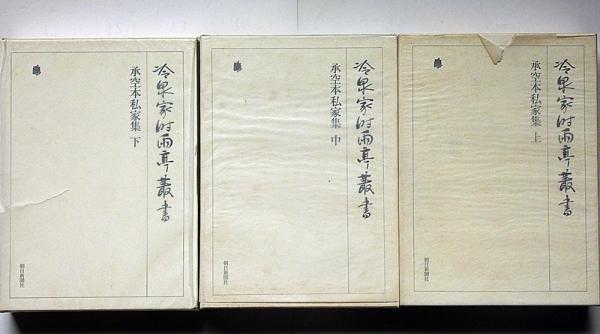 冷泉家時雨亭叢書
承空本私家集 上
朝日新聞社
冷泉家時雨亭叢書
承空本私家集 中
朝日新聞社
冷泉家時雨亭叢書
承空本私家集 下
朝日新聞社